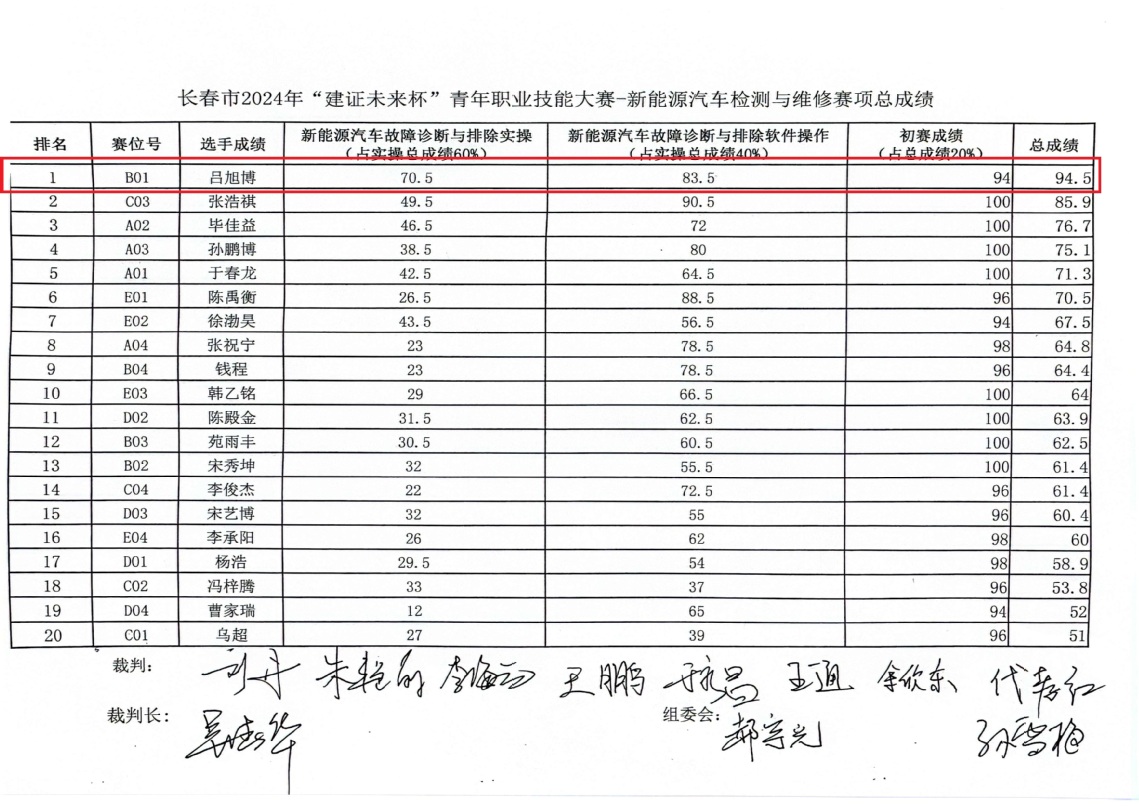 长春市2024年“建证未来杯”青年职业技能大赛-新能源汽车检测与维修赛项总成绩
排名 赛位号 选手成绩 新能源汽车故障诊断与排除实操（占实操总成绩60%） 新能源汽车故障诊断与排除软件操作（占实操总成绩40%） 初赛成绩（占总成绩20%） 总成绩
1 B01 吕旭博 70.5 83.5 94 94.5
2 C03 张浩祺 49.5 90.5 100 85.9
3 A02 毕佳益 46.5 72 100 76.7
4 A03 孙鹏博 38.5 80 100 75.1
5 A01 于春龙 42.5 64.5 100 71.3
6 E01 陈禹衡 26.5 88.5 96 70.5
7 E02 徐渤昊 43.5 56.5 94 67.5
8 A04 张祝宁 23 78.5 98 64.8
9 B04 钱程 23 78.5 96 64.4
10 E03 韩乙铭 29 66.5 100 64
11 D02 陈殿金 31.5 62.5 100 63.9
12 B03 苑雨丰 30.5 60.5 100 62.5
13 B02 宋秀坤 32 55.5 100 61.4
14 C04 李俊杰 22 72.5 96 61.4
15 D03 宋艺博 32 55 96 60.4
16 E04 李承阳 26 62 98 60
17 D01 杨浩 29.5 54 98 58.9
18 C02 冯梓腾 33 37 96 53.8
19 D04 曹家瑞 12 65 94 52
20 C01 乌超 27 39 96 51
裁判： 王鹏 王通
裁判长： 组委会：